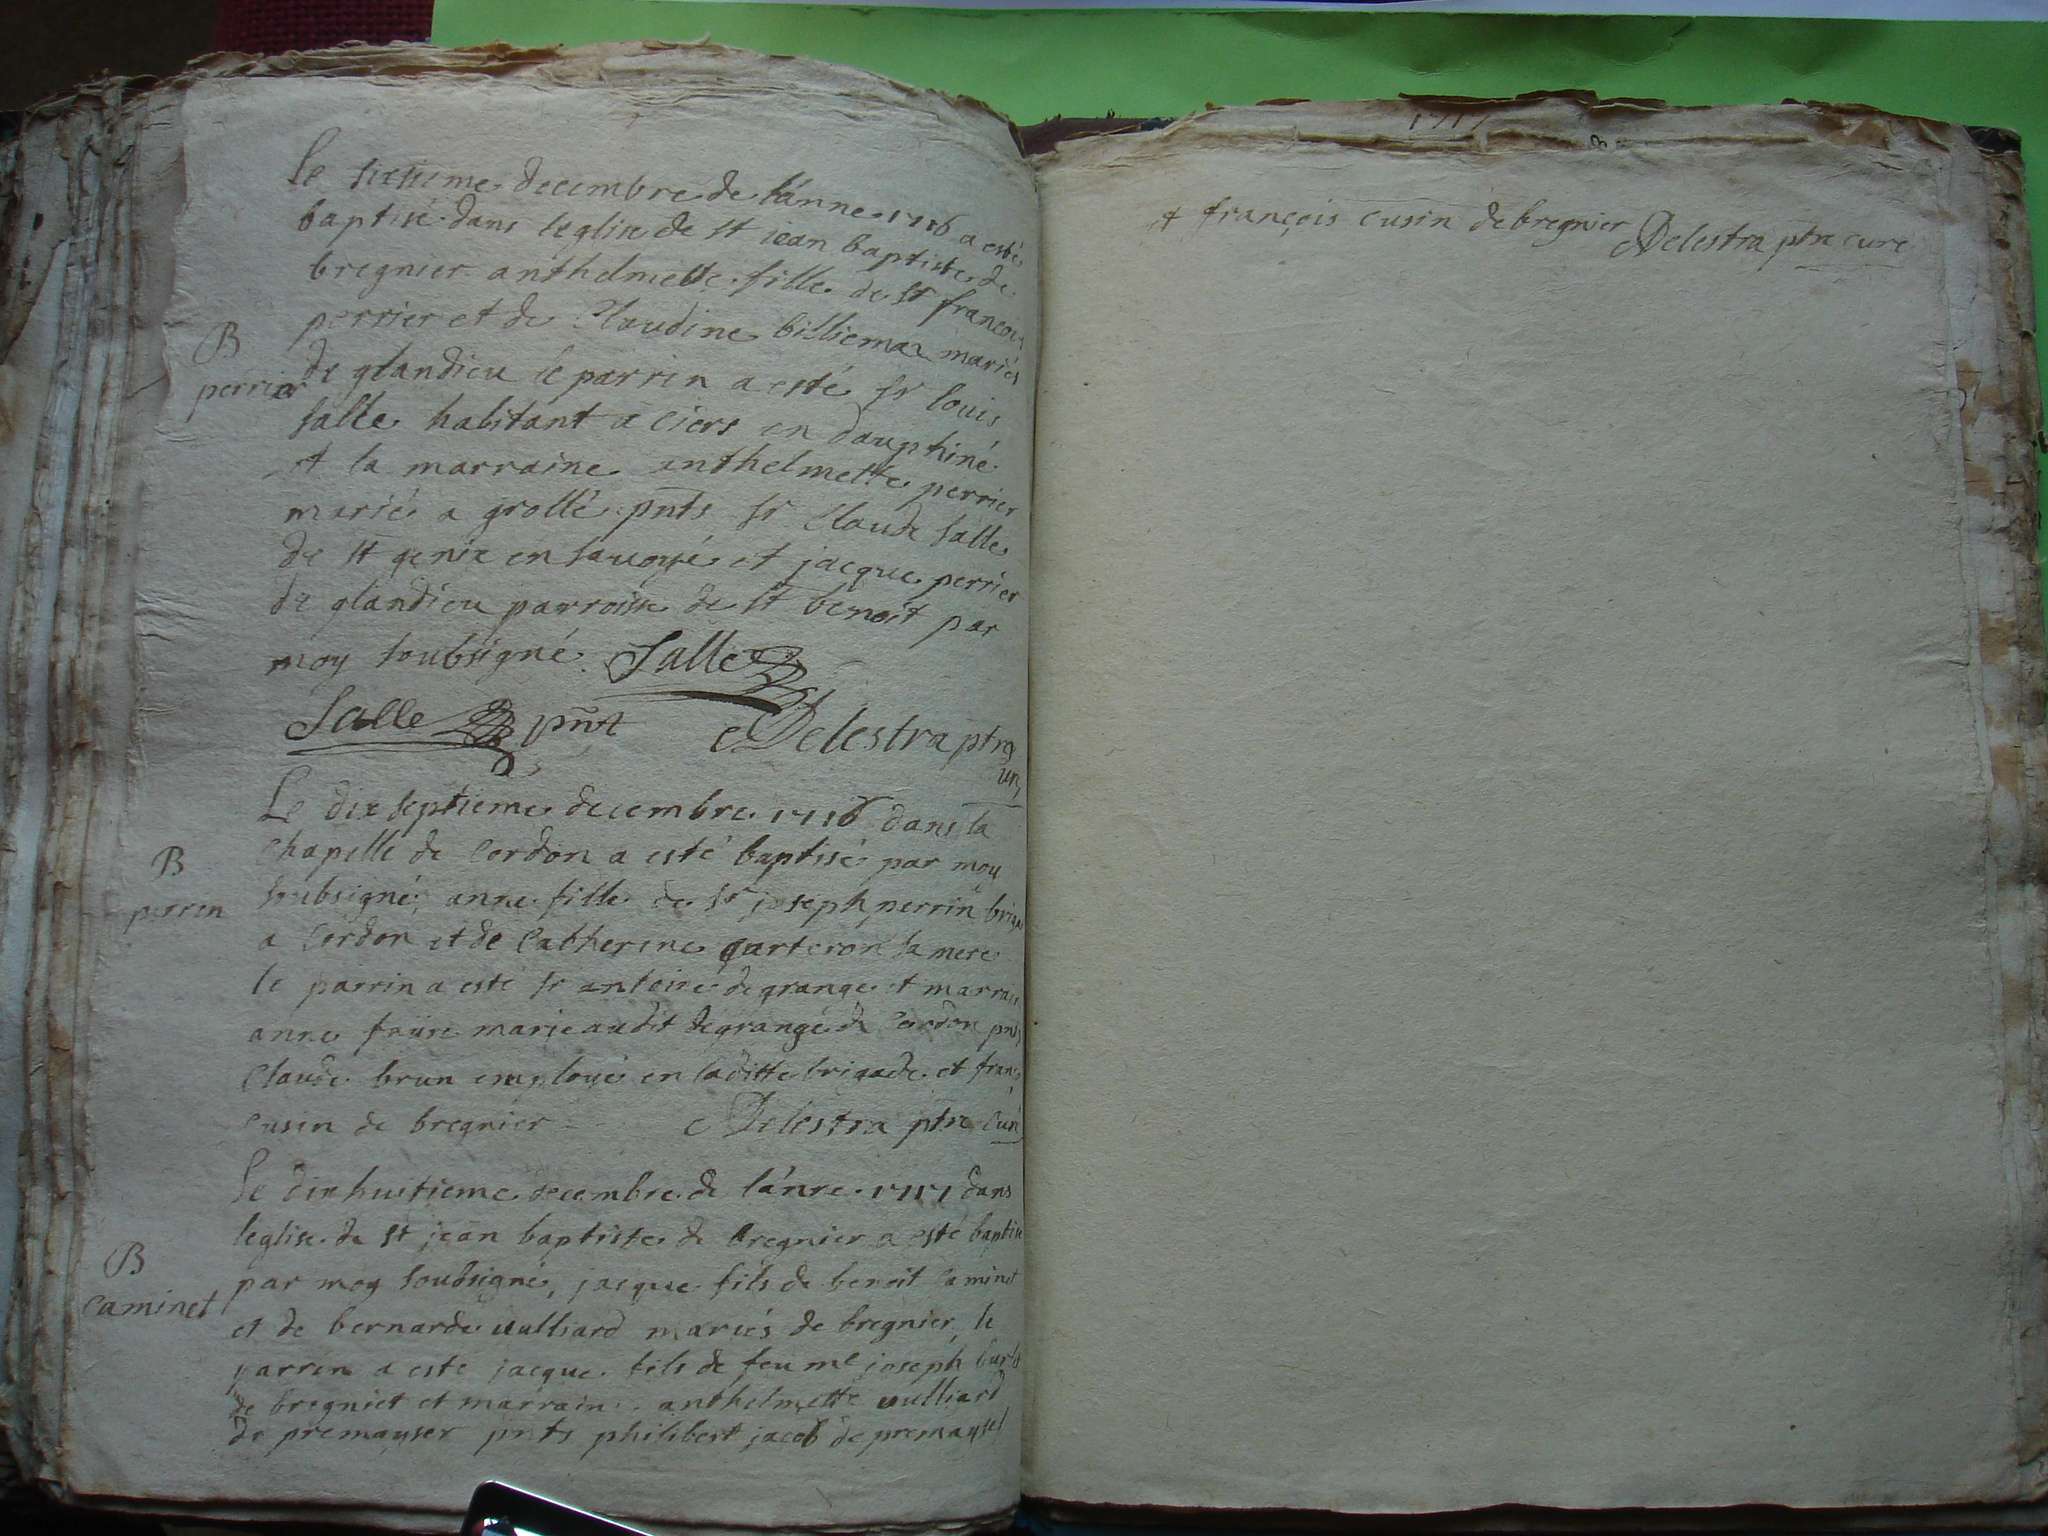 le sixsieme decembre de l'anne 1716 a esté
baptisé dans l'eglise de st jean baptiste de
bregnier anthelmette fille de sr francois
perrier et de Claudine billiemaz mariés
B
perrier
de glandieu le parrin a esté sr louis
salle habitant a ciers en dauphiné
et la marraine anthelmette perrier
marié a grollé pnts sr Claude salle
de st genix en savoye et jacque perrier
de glandieu parroisse de st benoit par
moy soubsigné Salle
Salle pnt Delestra ptre
cure
Le dix septieme decembre 1716 dans la
B
perrin
chapelle de Cordon a esté baptisé par moy
soubsigné, anne fille de sr joseph perrin
a Cordon et de Catherine quarteron sa mere
le parrin a esté sr antoine degrange et
anne marie audit degrange de Cordon pnts
Claude brun employé en laditte brigade et
cusin de bregnier Delestra ptre Curé
Le dix huitieme decembre de l'anne 1717 dans
l'eglise de st jean baptiste de bregnier a esté baptisé
B
caminet
par moy soubsigné, jacque fils de benoit Caminet
et de bernarde vulliard mariés de bregnier, le
parrin a esté jacque fils de feu me joseph
de bregniet et marraine anthelmette vulliard
de premayser pnts philibert jacob de premaysel
1717
et françois cusin de bregnier Delestra ptre curé